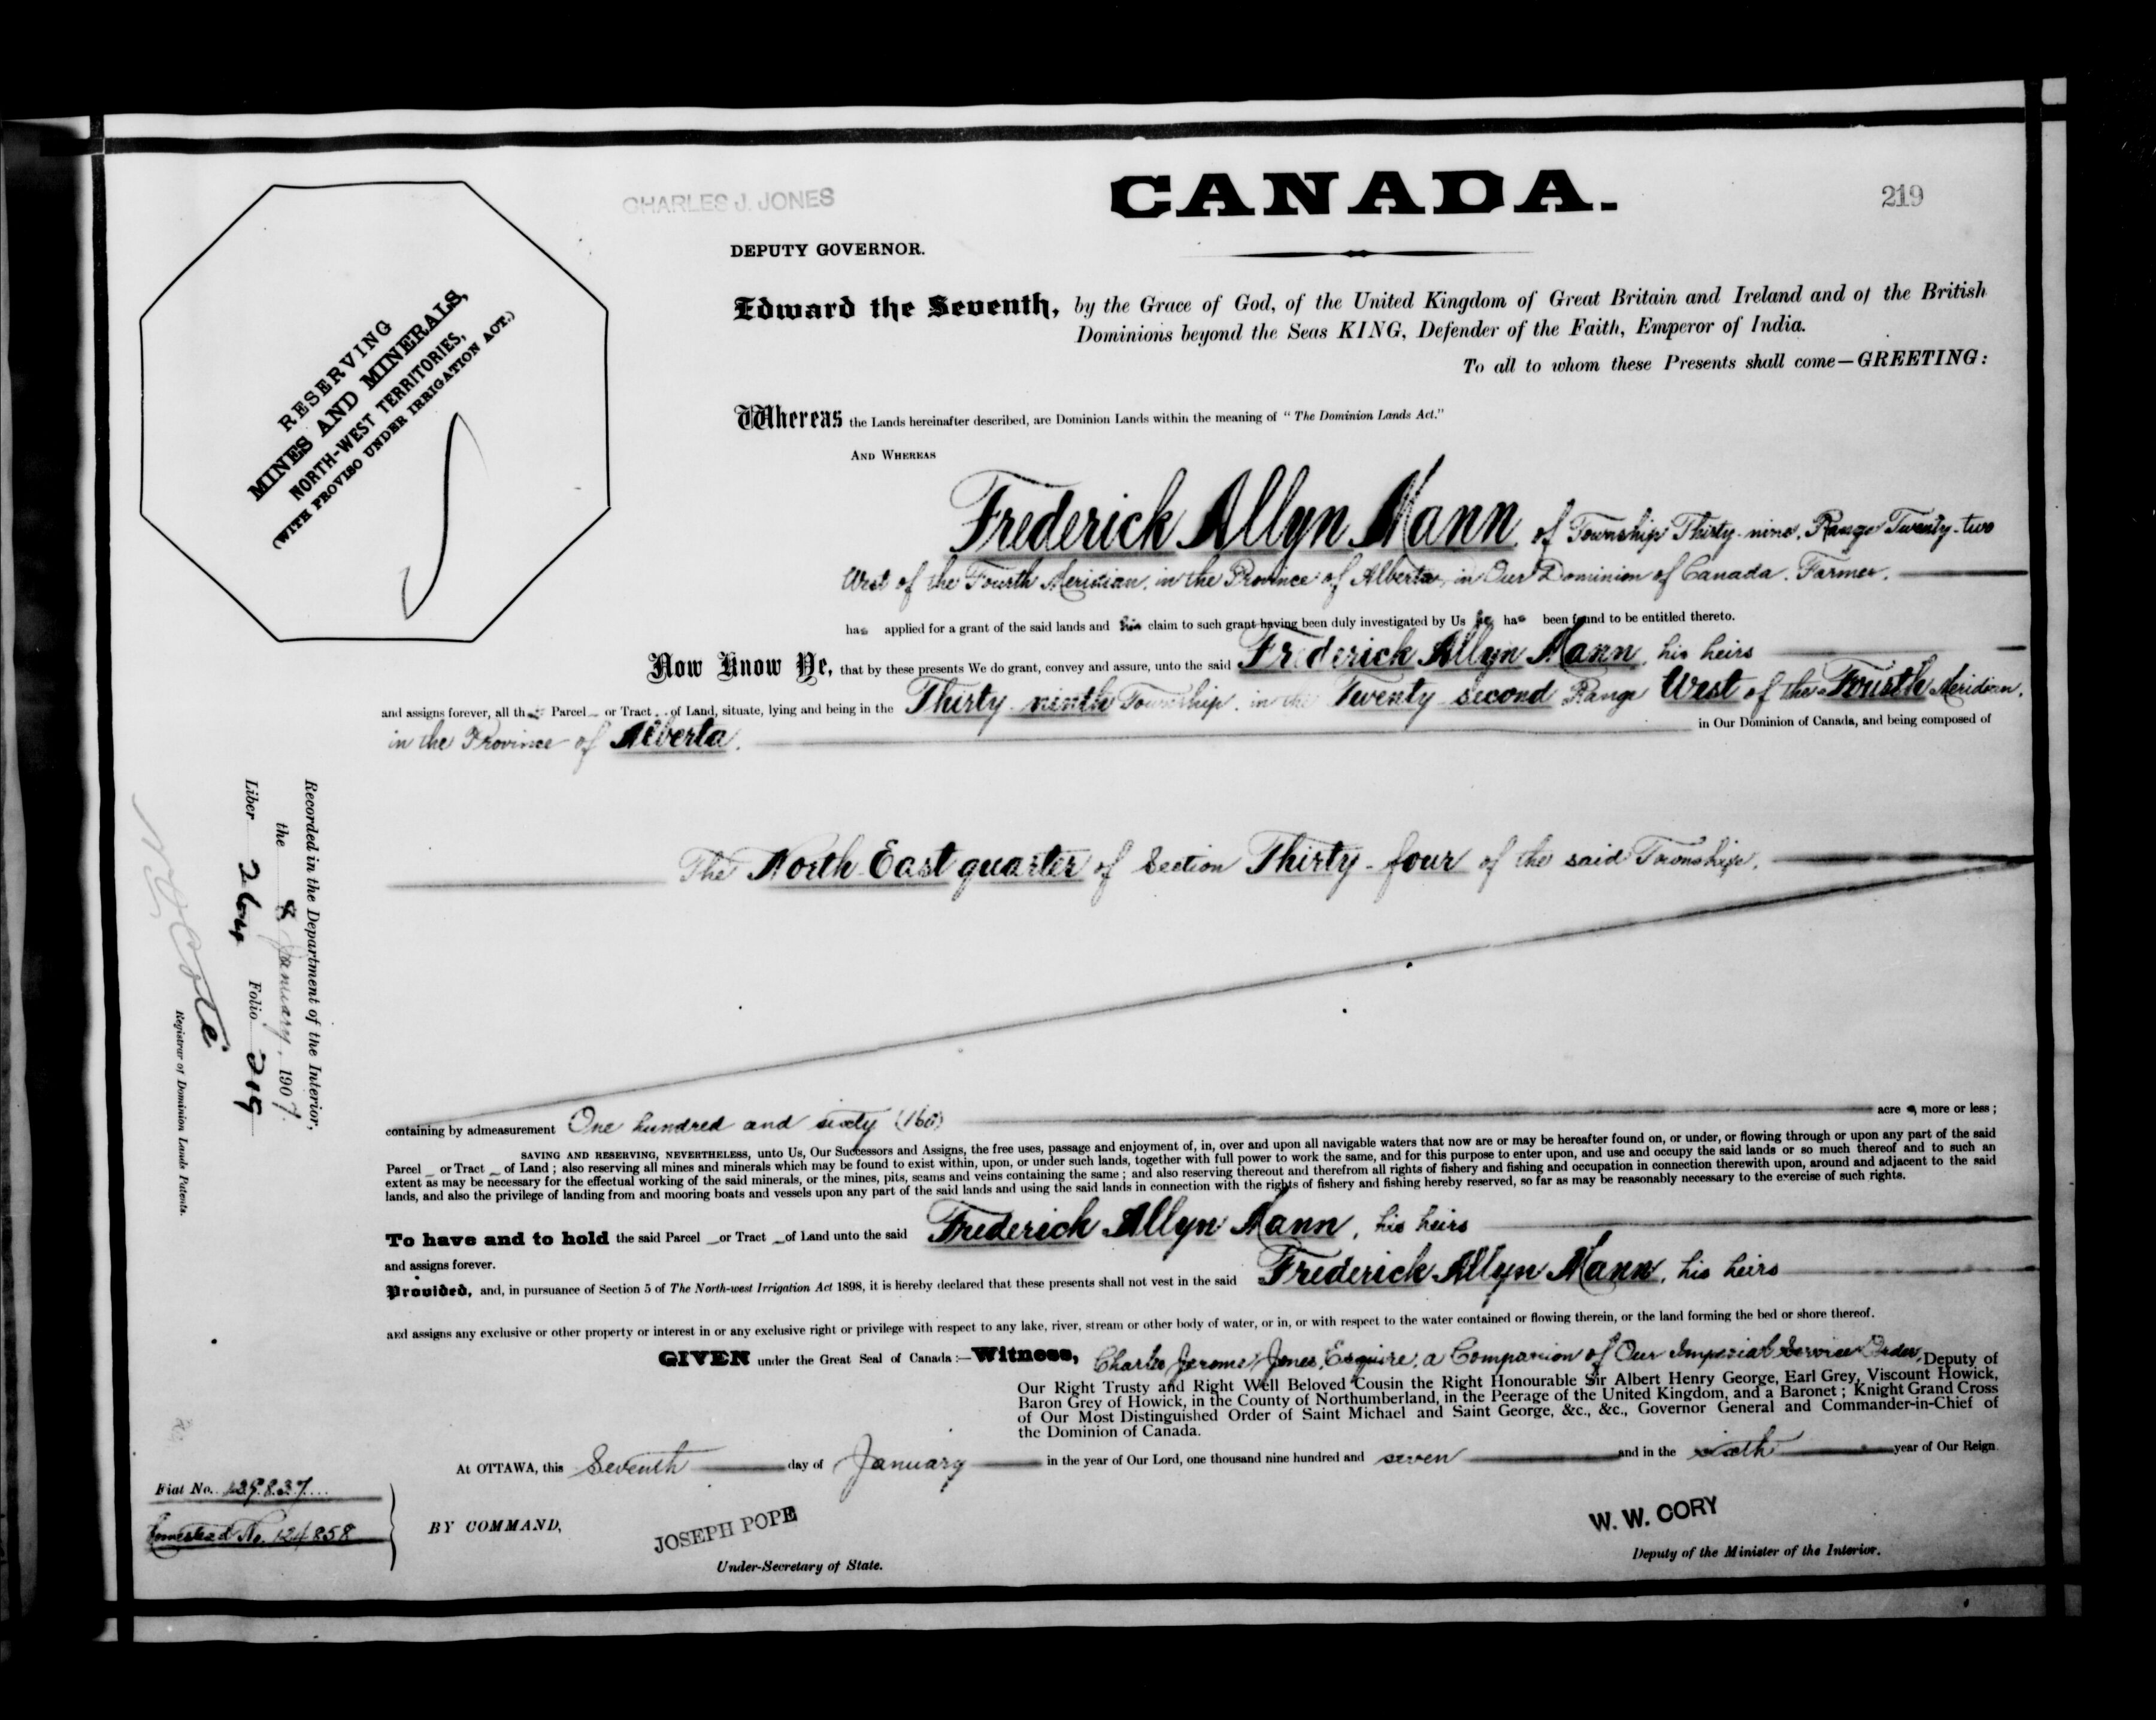 CHARLES J. JONES
CANADA.
219
DEPUTY GOVERNOR.
RESERVING
MINES AND MINERALS,
NORTH-WEST TERRITORIES,
(WITH PROVISO UNDER IRRIGATION ACT.)
Edward the Seventh, by the Grace of God, of the United Kingdom of Great Britain and Ireland and of the British
Dominions beyond the Seas KING, Defender of the Faith, Emperor of India.
To all to whom these Presents shall come—GREETING:
Whereas the Lands hereinafter described, are Dominion Lands within the meaning of "The Dominion Lands Act."
AND WHEREAS
Frederick Allyn Mann of Township Thirty-nine, Range Twenty-two
West of the Fourth Meridian, in the Province of Alberta, in Our Dominion of Canada, Farmer,
has applied for a grant of the said lands and his claim to such grant having been duly investigated by Us he has been found to be entitled thereto.
Now Know Ye, that by these presents We do grant, convey and assure, unto the said Frederick Allyn Mann, his heirs
and assigns forever, all that Parcel or Tract of Land, situate, lying and being in the Thirty-ninth Township, in the Twenty-second Range West of the Fourth Meridian,
in the Province of Alberta, in Our Dominion of Canada, and being composed of
The North East quarter of Section Thirty-four of the said Township,
Recorded in the Department of the Interior,
the 8 January, 1907.
Liber 264 Folio 219
N O Coté
Registrar of Dominion Lands Patents.
containing by admeasurement One hundred and sixty (160) acres, more or less;
SAVING AND RESERVING, NEVERTHELESS, unto Us, Our Successors and Assigns, the free uses, passage and enjoyment of, in, over and upon all navigable waters that now are or may be hereafter found on, or under, or flowing through or upon any part of the said
Parcel or Tract of Land; also reserving all mines and minerals which may be found to exist within, upon, or under such lands, together with full power to work the same, and for this purpose to enter upon, and use and occupy the said lands or so much thereof and to such an
extent as may be necessary for the effectual working of the said minerals, or the mines, pits, seams and veins containing the same; and also reserving thereout and therefrom all rights of fishery and fishing and occupation in connection therewith upon, around and adjacent to the said
lands, and also the privilege of landing from and mooring boats and vessels upon any part of the said lands and using the said lands in connection with the rights of fishery and fishing hereby reserved, so far as may be reasonably necessary to the exercise of such rights.
To have and to hold the said Parcel or Tract of Land unto the said Frederick Allyn Mann, his heirs
and assigns forever.
Provided, and, in pursuance of Section 5 of The North-west Irrigation Act 1898, it is hereby declared that these presents shall not vest in the said Frederick Allyn Mann, his heirs
and assigns any exclusive or other property or interest in or any exclusive right or privilege with respect to any lake, river, stream or other body of water, or in, or with respect to the water contained or flowing therein, or the land forming the bed or shore thereof.
GIVEN under the Great Seal of Canada:—Witness, Charles Jerome Jones, Esquire, a Companion of Our Imperial Service Order, Deputy of
Our Right Trusty and Right Well Beloved Cousin the Right Honourable Sir Albert Henry George, Earl Grey, Viscount Howick,
Baron Grey of Howick, in the County of Northumberland, in the Peerage of the United Kingdom, and a Baronet; Knight Grand Cross
of Our Most Distinguished Order of Saint Michael and Saint George, &c., &c., Governor General and Commander-in-Chief of
the Dominion of Canada.
At OTTAWA, this Seventh day of January in the year of Our Lord, one thousand nine hundred and seven and in the sixth year of Our Reign.
Fiat No. 129837
Homestead No. 124858
BY COMMAND,
JOSEPH POPE
Under-Secretary of State.
W. W. CORY
Deputy of the Minister of the Interior.